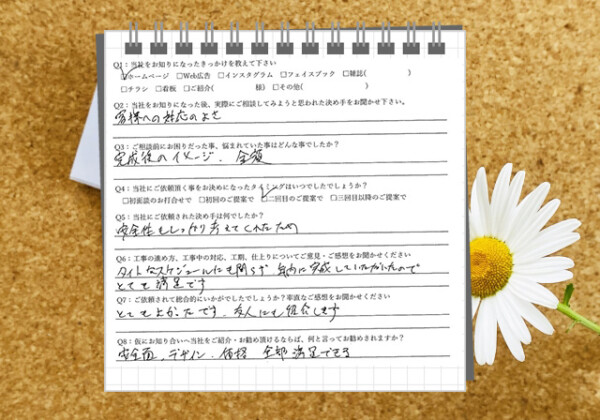 Q1：当社をお知りになったきっかけを教えて下さい
☑ホームページ □Web広告 □インスタグラム □フェイスブック □雑誌(　　　)
□チラシ □看板 □ご紹介(　　　様) □その他(　　　)
Q2：当社をお知りになった後、実際にご相談してみようと思われた決め手をお聞かせ下さい。
客様への対応のよさ
Q3：ご相談前にお困りだった事、悩まれていた事はどんな事でしたか？
完成後のイメージ、金額
Q4：当社にご依頼頂く事をお決めになったタイミングはいつでしたでしょうか？
□初面談のお打合せで □初回のご提案で ☑二回目のご提案で □三回目以降のご提案で
Q5：当社にご依頼された決め手は何でしたか？
安全性もしっかり考えてくれたため
Q6：工事の進め方、工事中の対応、工期、仕上りについてご意見・ご感想をお聞かせください
タイトなスケジュールにも関らず 年内に完成していただいたので
とても満足です
Q7：ご依頼されて総合的にいかがでしたでしょうか？率直なご感想をお聞かせください
とてもよかったです。友人にも紹介します
Q8：仮にお知り合いへ当社をご紹介・お勧め頂けるならば、何と言ってお勧めされますか？
安全面、デザイン、価格 全部満足できる